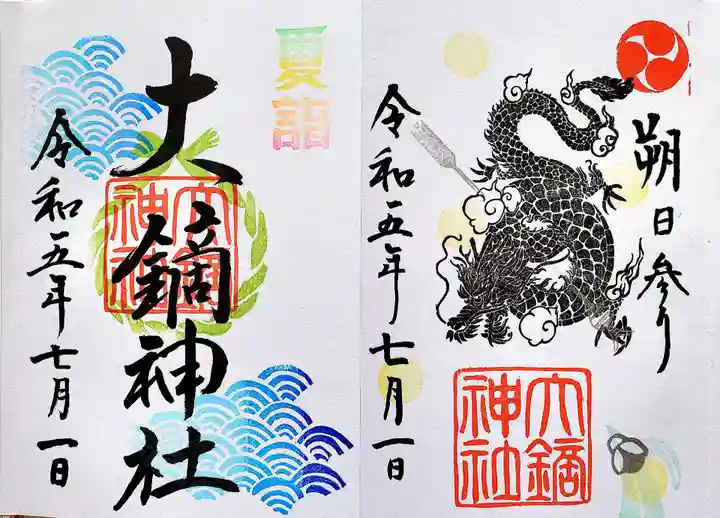 夏詣
大鏑神社
大鏑神社
令和五年七月一日
朔日参り
大鏑神社
令和五年七月一日